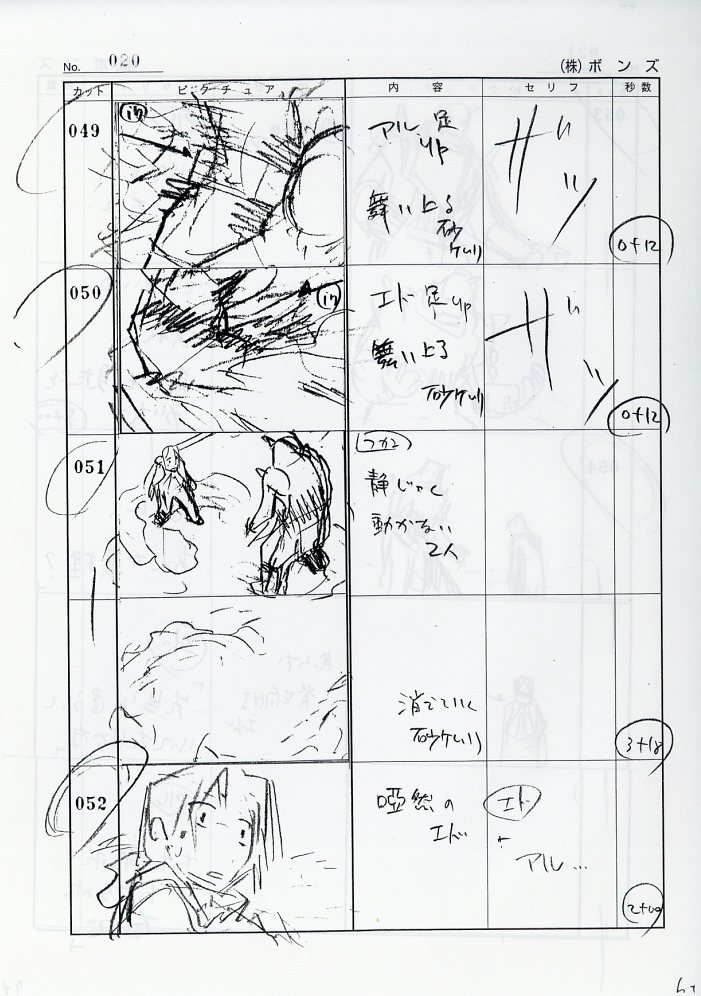 No. 020
(株)ボンズ
カット ピクチュア 内容 セリフ 秒数
049
in
アル 足
up
舞い上る
砂
ケムリ
ザッ
0+12
050
in
エド 足 up
舞い上る
砂ケムリ
ザッ
0+12
051
静じゃく
動かない
2人
消えていく
砂ケムリ
3+18
052
唖然の
エド
エド
アル…